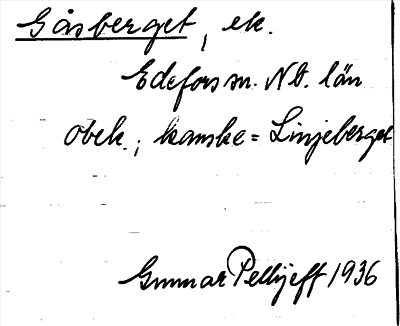 Gåsberget, ek.
Edefors sn. Nb. län
obek.; kanske = Linjeberget
Gunnar Pellijeff 1936